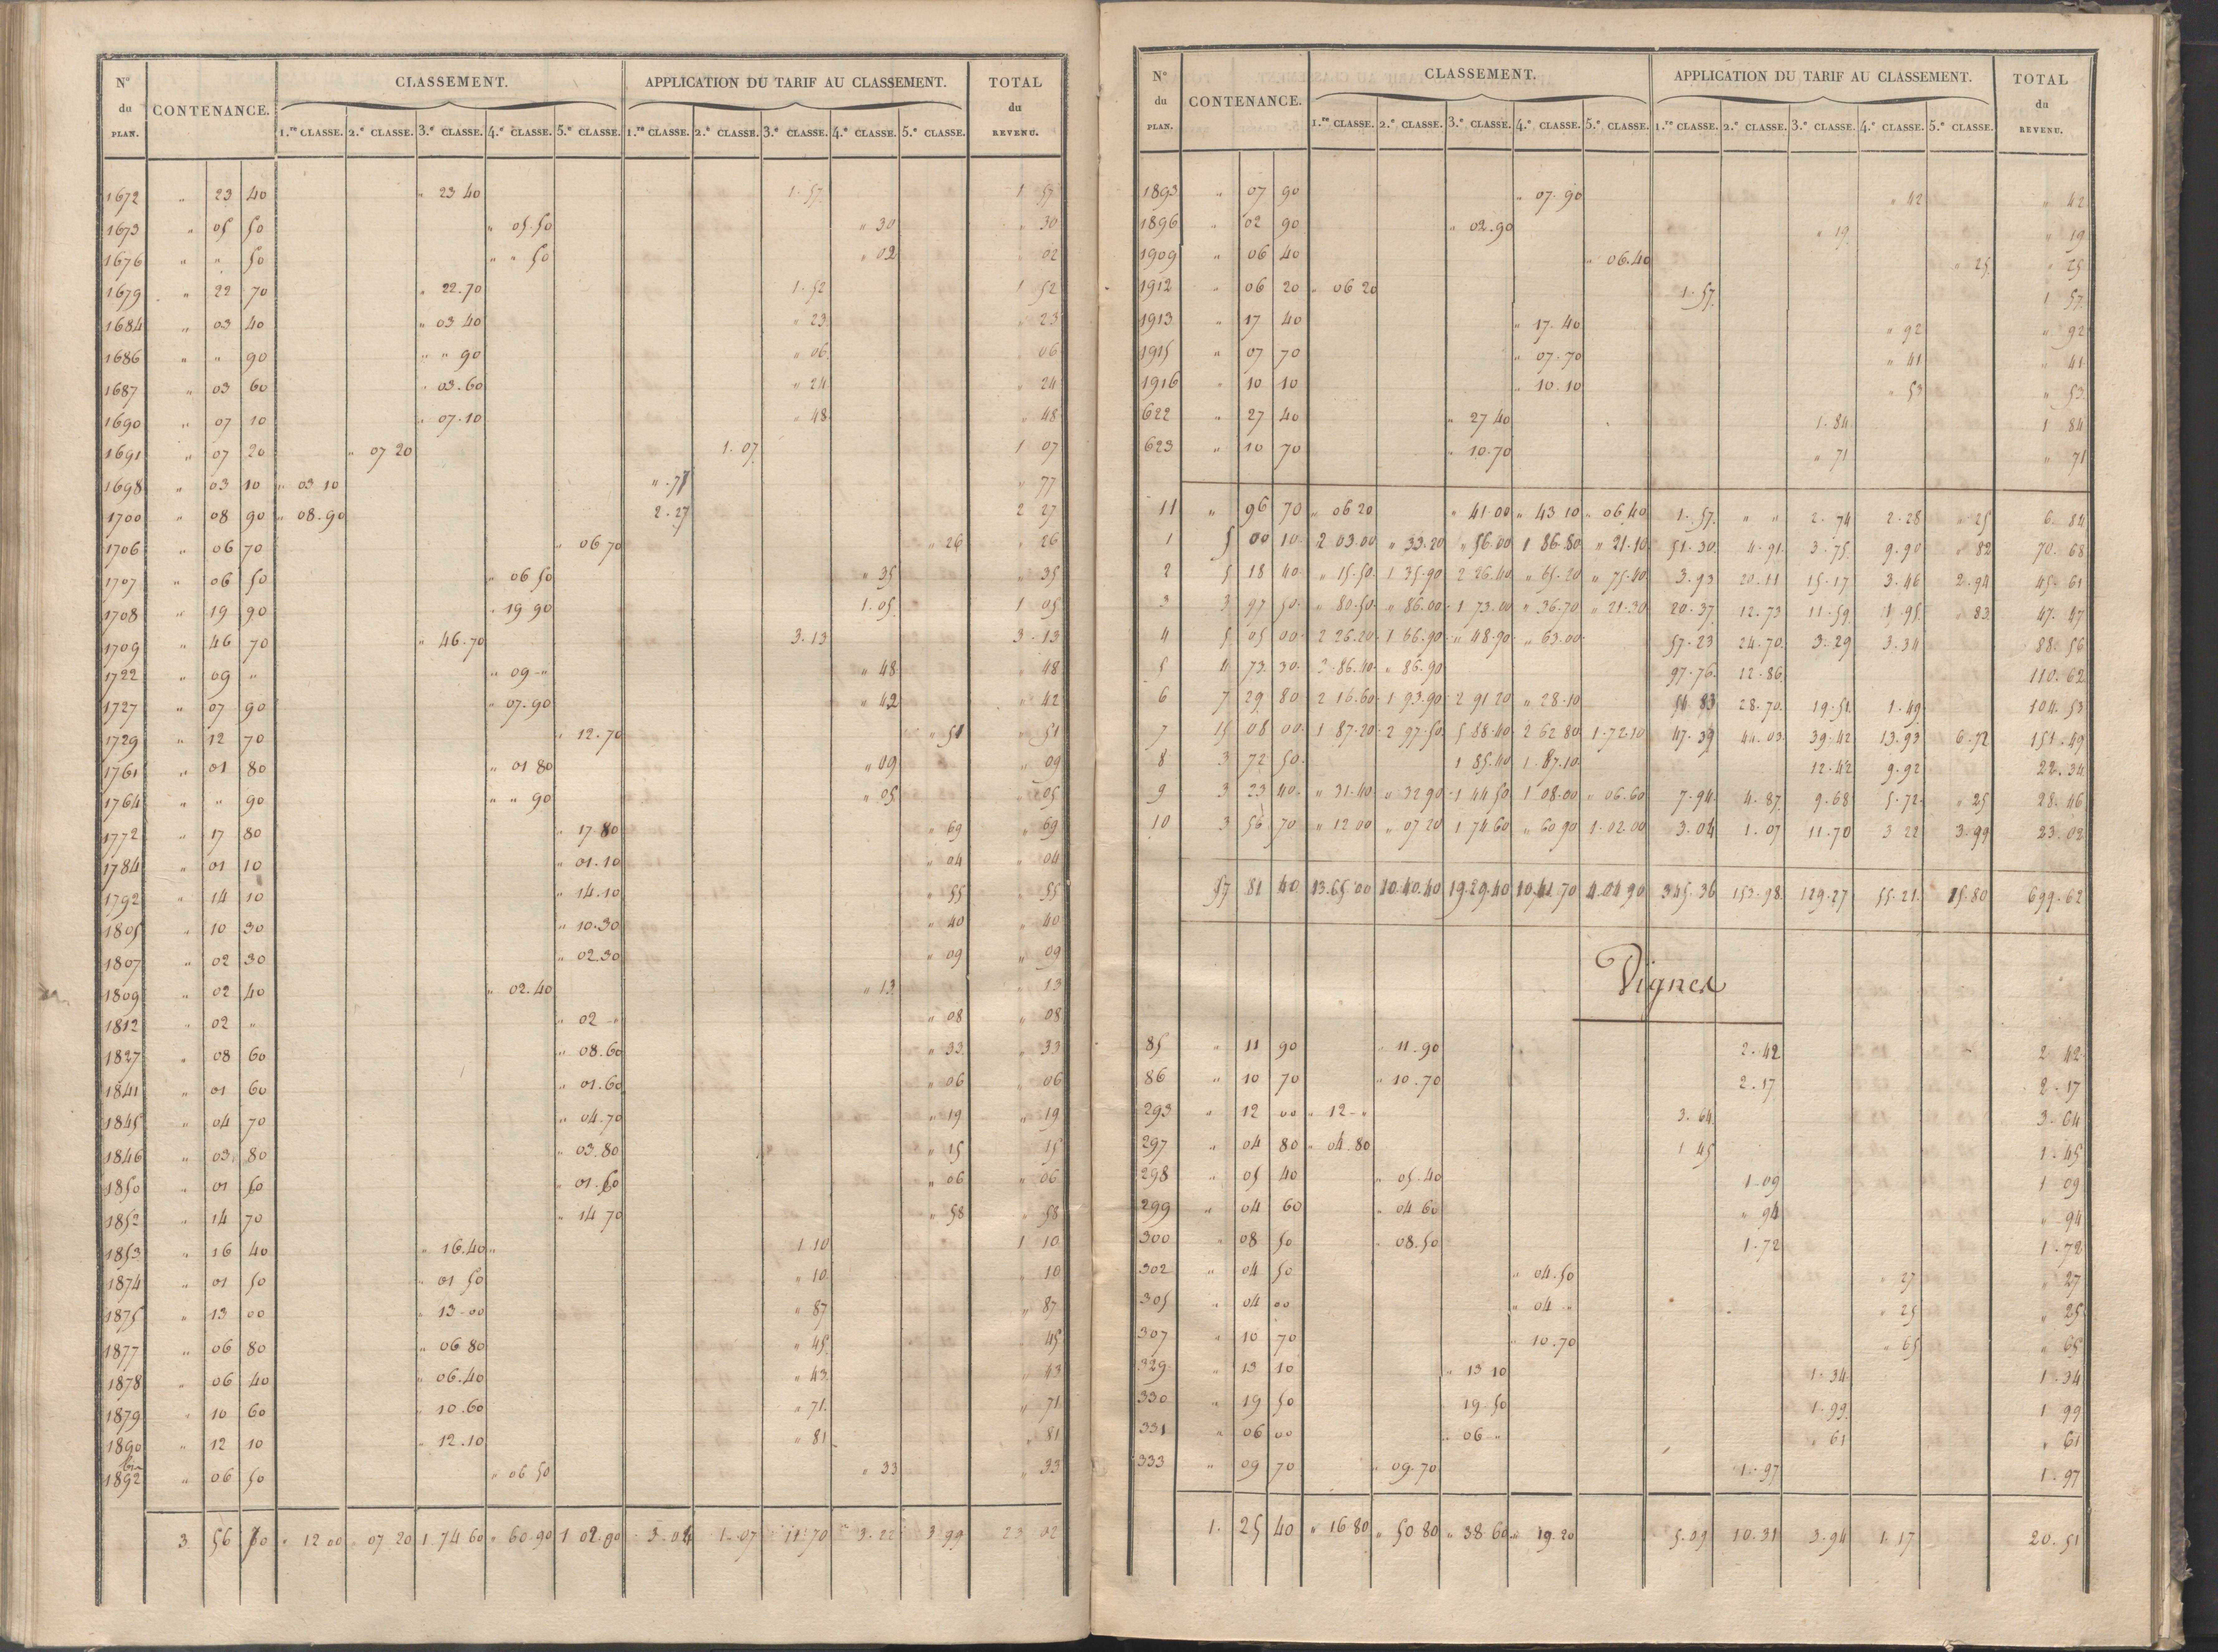 N.º du PLAN. CONTENANCE. CLASSEMENT. APPLICATION DU TARIF AU CLASSEMENT. TOTAL du REVENU.
1.re CLASSE. 2.e CLASSE. 3.e CLASSE. 4.e CLASSE. 5.e CLASSE. 1.re CLASSE. 2.e CLASSE. 3.e CLASSE. 4.e CLASSE. 5.e CLASSE.
1672 " 23 40 " 23 40 1.57 1 57
1673 " 05 50 " 05.50 " 30 " 30
1676 " " 50 " " 50 " 02 " 02
1679 " 22 70 " 22.70 1.52 1 52
1684 " 03 40 " 03 40 " 23 " 23
1686 " " 90 " " 90 " 06 " 06
1687 " 03 60 " 03.60 " 24 " 24
1690 " 07 10 " 07.10 " 48 " 48
1691 " 07 20 " 07 20 1.07 1 07
1698 " 03 10 " 03 10 " .77 " 77
1700 " 08 90 " 08.90 2.27 2 27
1706 " 06 70 " 06 70 " 26 " 26
1707 " 06 50 " 06 50 " 35 " 35
1708 " 19 90 " 19 90 1.05 1 05
1709 " 46 70 " 46.70 3.13 3.13
1722 " 09 " " 09 - " " 48 " 48
1727 " 07 90 " 07.90 " 42 " 42
1729 " 12 70 " 12.70 " 51 " 51
1761 " 01 80 " 01 80 " 09 " 09
1764 " " 90 " " 90 " 05 " 05
1772 " 17 80 " 17 80 " 69 " 69
1784 " 01 10 " 01.10 " 04 " 04
1792 " 14 10 " 14.10 " 55 " 55
1805 " 10 30 " 10.30 " 40 " 40
1807 " 02 30 " 02.30 " 09 " 09
1809 " 02 40 " 02.40 " 13 " 13
1812 " 02 " " 02 - " " 08 " 08
1827 " 08 60 " 08.60 " 33 " 33
1841 " 01 60 " 01.60 " 06 " 06
1845 " 04 70 " 04.70 " 19 " 19
1846 " 03 80 " 03.80 " 15 " 15
1850 " 01 60 " 01.60 " 06 " 06
1852 " 14 70 " 14 70 " 58 " 58
1853 " 16 40 " 16.40 " 1 10 1 10
1874 " 01 50 " 01 50 " 10 " 10
1875 " 13 00 " 13-00 " 87 " 87
1877 " 06 80 " 06 80 " 45 " 45
1878 " 06 40 " 06.40 " 43 " 43
1879 " 10 60 " 10.60 " 71 " 71
1890 " 12 10 " 12.10 " 81 " 81
bis
1892 " 06 50 " 06 50 " 33 " 33
3 56 70 " 12 00 " 07 20 1 74 60 " 60.90 1 02.00 3.04 1.07 11.70 3.22 3 99 23 02
N.º du PLAN. CONTENANCE. CLASSEMENT. APPLICATION DU TARIF AU CLASSEMENT. TOTAL du REVENU.
1.re CLASSE. 2.e CLASSE. 3.e CLASSE. 4.e CLASSE. 5.e CLASSE. 1.re CLASSE. 2.e CLASSE. 3.e CLASSE. 4.e CLASSE. 5.e CLASSE.
1893 " 07 90 " 07.90 " 42 " 42
1896 " 02 90 " 02.90 " 19 " 19
1909 " 06 40 " 06.40 " 25 " 25
1912 " 06 20 " 06 20 1.57 1 57
1913 " 17 40 " 17.40 " 92 " 92
1915 " 07 70 " 07.70 " 41 " 41
1916 " 10 10 " 10.10 " 53 " 53
622 " 27 40 " 27 40 1.84 1 84
623 " 10 70 " 10.70 " 71 " 71
11 " 96 70 " 06 20 " 41.00 " 43 10 " 06 40 1.57 " " 2.74 2.28 " 25 6.84
1 5 00 10 2 03.00 " 33.20 " 56.00 1 86.80 " 21.10 51.30 4.91 3.75 9.90 " 82 70.68
2 5 18 40 " 15.50 1 35.90 2 26.40 " 65.20 " 75.40 3.93 20.11 15.17 3.46 2.94 45.61
3 3 97 50 " 80.50 " 86.00 1 73.00 " 36.70 " 21.30 20.37 12.73 11.59 1.95 83 47.47
4 5 05 00 2 26.20 1 66.90 " 48.90 " 63.00 57.23 24.70 3.29 3.34 88.56
5 4 73 30 3.86.40 " 86.90 97.76 12.86 110.62
6 7 29 80 2 16.60 1 93.90 2 91 20 " 28.10 54 83 28.70 19.51 1.49 104.53
7 15 08 00 1 87.20 2 97.50 5 88.40 2 62 80 1.72.10 47.39 44.03 39.42 13.93 6.72 151.49
8 3 72 50 1 85.40 1.87.10 12.42 9.92 22.34
9 3 23 40 " 31.40 " 32 90 1 44 50 1 08.00 " 06.60 7.94 4.87 9.68 5.72 " 25 28.46
10 3 56 70 " 12 00 " 07 20 1 74.60 " 60 90 1.02.00 3.04 1.07 11.70 3 22 3.99 23.02
57 81 40 13.65.00 10.40.40 19.29.40 10.41.70 4.04 90 345.36 153.98 129.27 55.21 15.80 699.62
Vignes
85 " 11 90 " 11.90 2.42 2 42
86 " 10 70 " 10.70 2.17 2.17
293 " 12 00 " 12 - " 3.64 3.64
297 " 04 80 " 04.80 1 45 1.45
298 " 05 40 " 05.40 1-09 1 09
299 " 04 60 " 04 60 " 94 " 94
300 " 08 50 " 08.50 1.72 1.72
302 " 04 50 " 04.50 " 27 " 27
305 " 04 00 " 04 - " " 25 " 25
307 " 10 70 " 10.70 " 65 " 65
329 " 13 10 " 13 10 1.34 1.34
330 " 19 50 19 50 1.99 1 99
331 " 06 00 " 06 - " " 61 " 61
333 " 09 70 " 09.70 1.97 1.97
1. 25 40 " 16 80 " 50 80 " 38 60 " 19.20 5.09 10.31 3.94 1.17 20.51